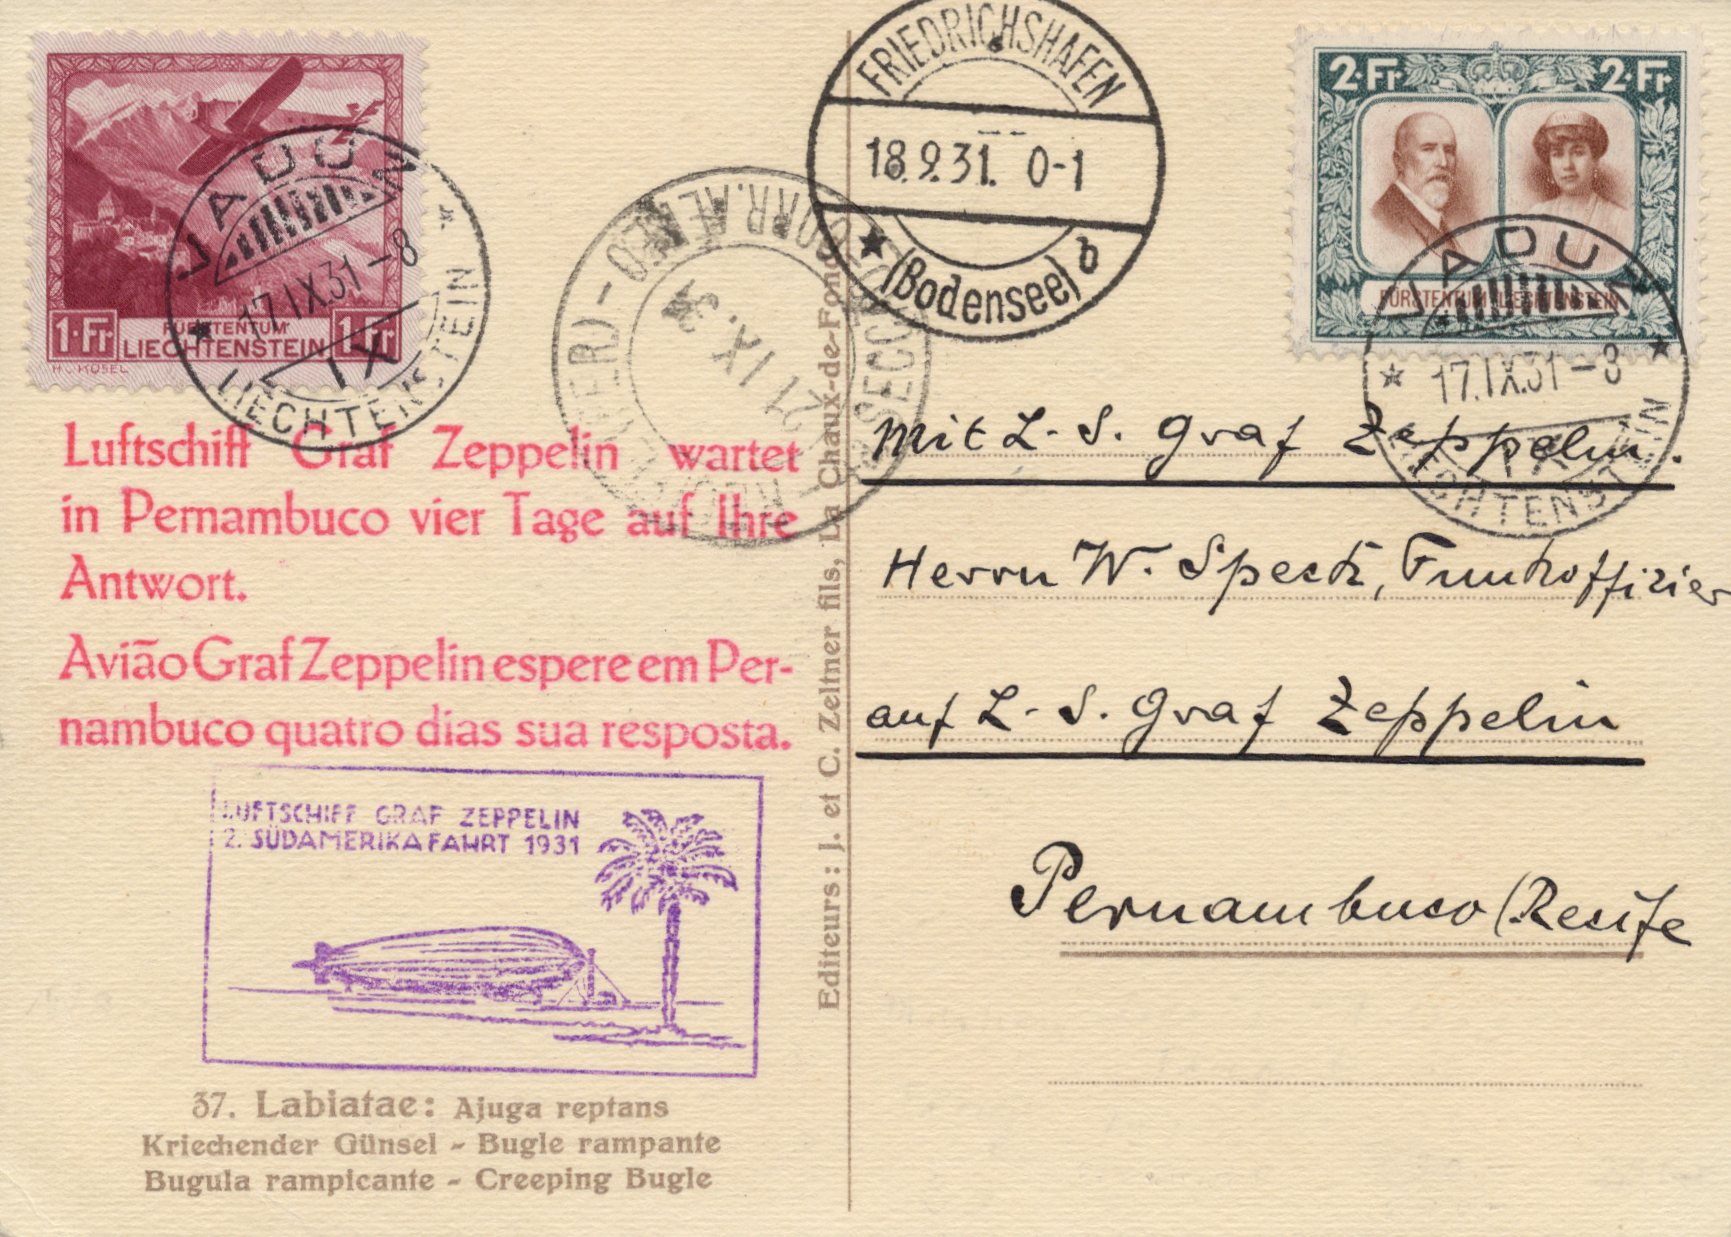 1·Fr
FÜRSTENTUM
LIECHTENSTEIN
1·Fr
VADUZ
17.IX.31-8
IX
LIECHTENSTEIN
FRIEDRICHSHAFEN
18.9.31. 0-1
(Bodensee) b
2·Fr
2·Fr
FÜRSTENTUM LIECHTENSTEIN
VADUZ
17.IX.31-8
IX
LIECHTENSTEIN
21.IX.31
Luftschiff Graf Zeppelin wartet
in Pernambuco vier Tage auf Ihre
Antwort.
Avião Graf Zeppelin espere em Per-
nambuco quatro dias sua resposta.
LUFTSCHIFF GRAF ZEPPELIN
2. SÜDAMERIKAFAHRT 1931
37. Labiatae: Ajuga reptans
Kriechender Günsel - Bugle rampante
Bugula rampicante - Creeping Bugle
Editeurs: J. et C. Zeltner fils, La Chaux-de-Fonds
Mit L.-S. Graf Zeppelin.
Herrn W. Speck, Funkoffizier
auf L.-S. Graf Zeppelin
Pernambuco (Recife